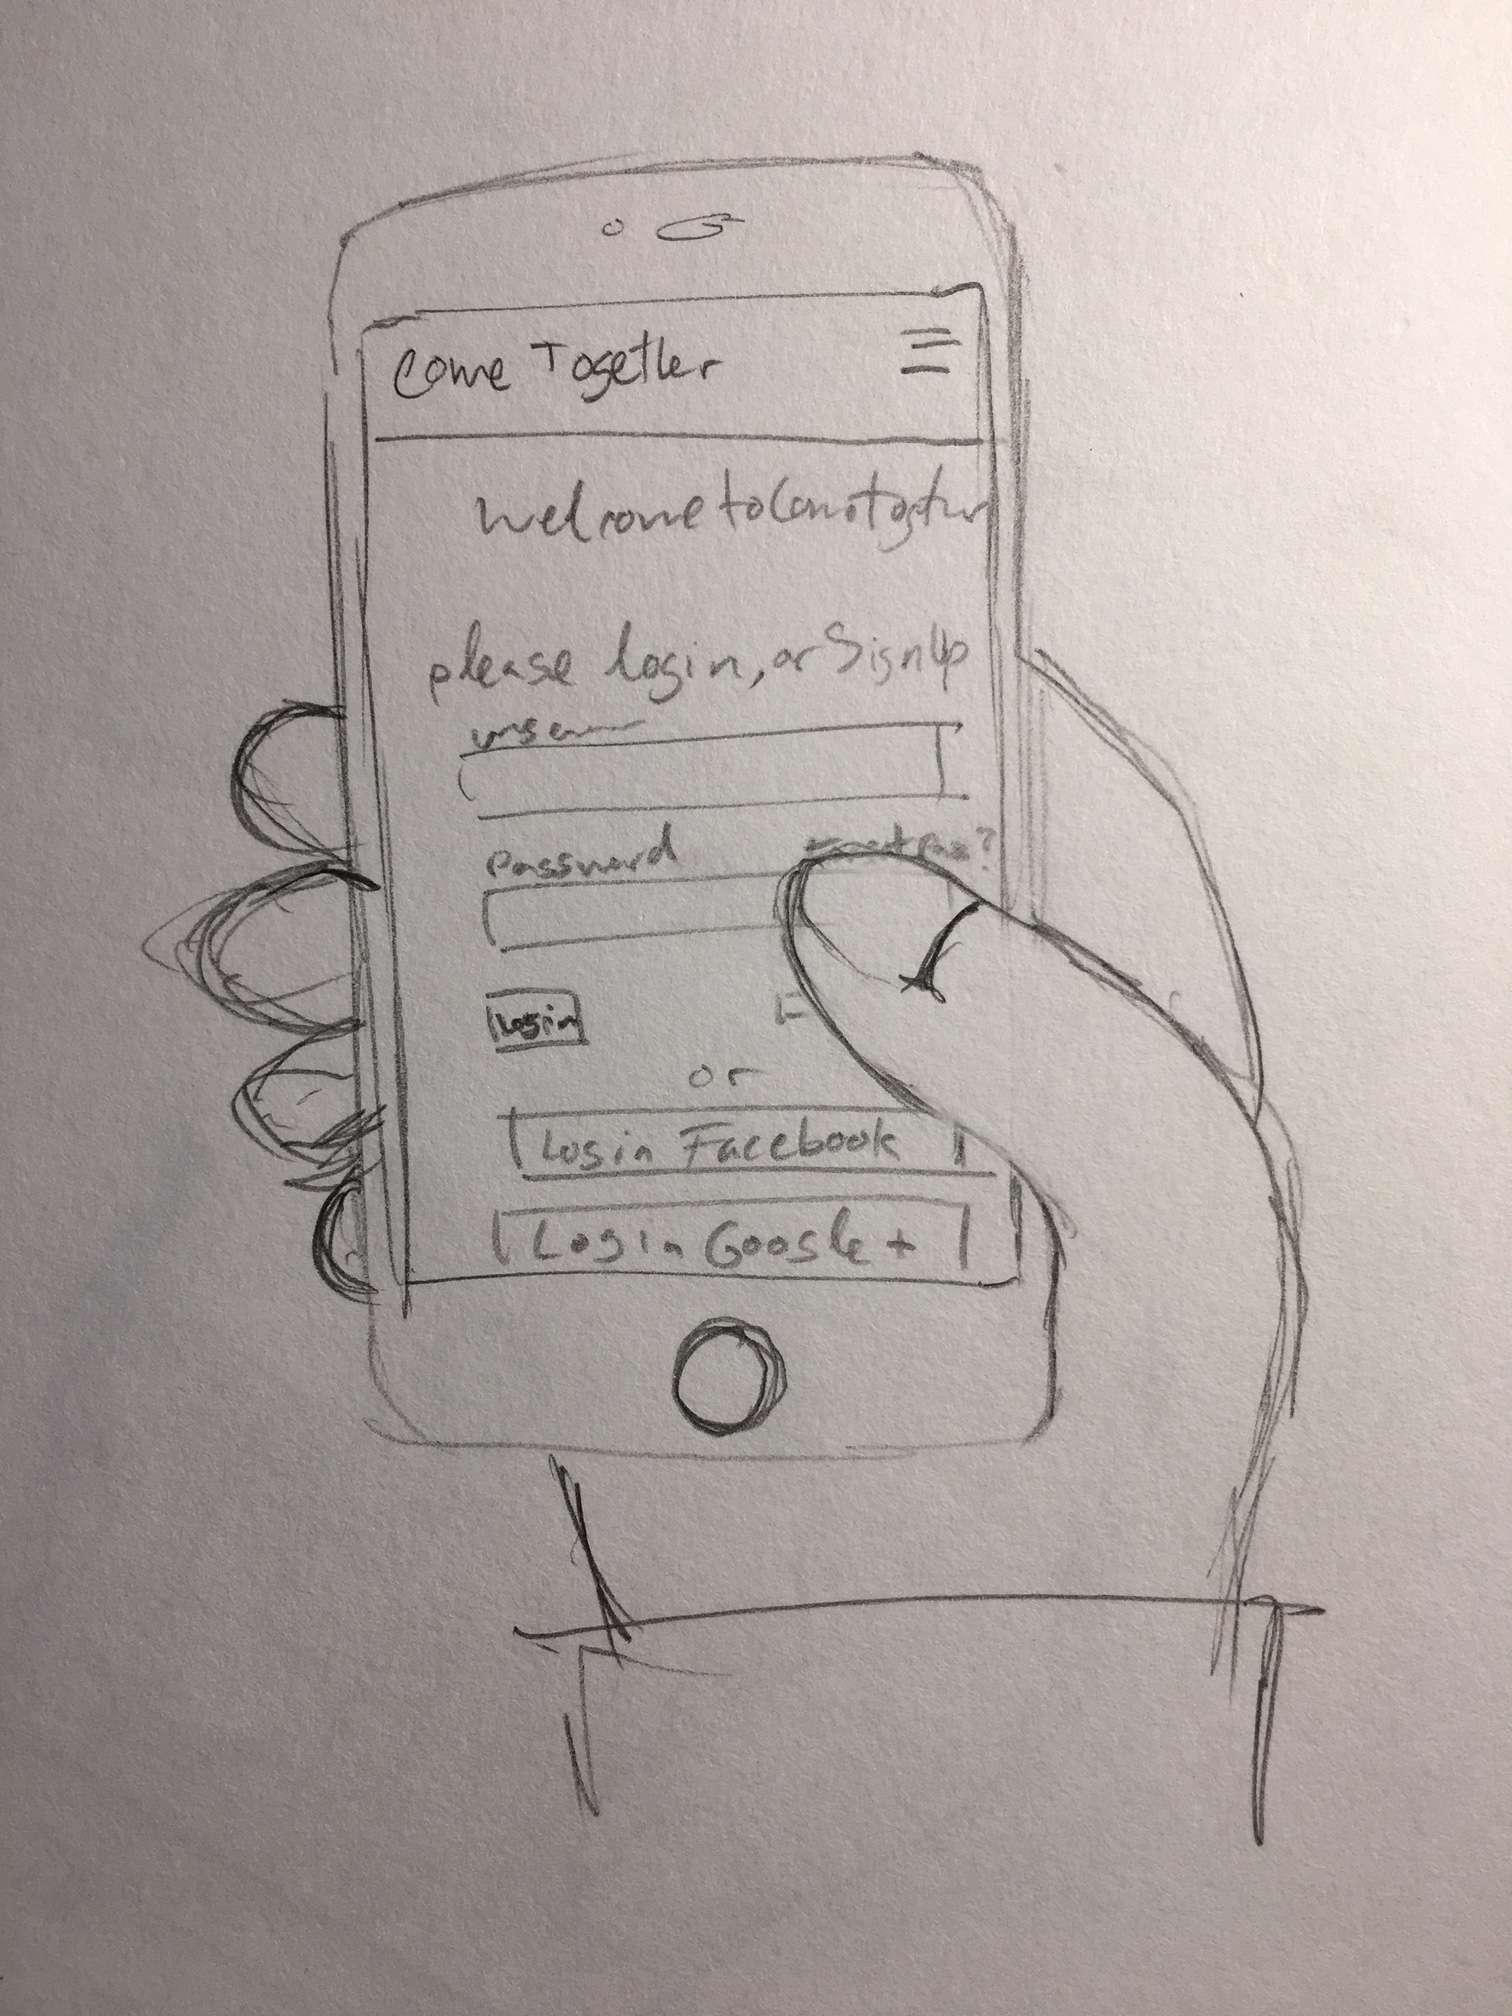 Come Together
Welcome to Come Together
please login, or SignUp
Password
Login
or
Login Facebook
Login Google +